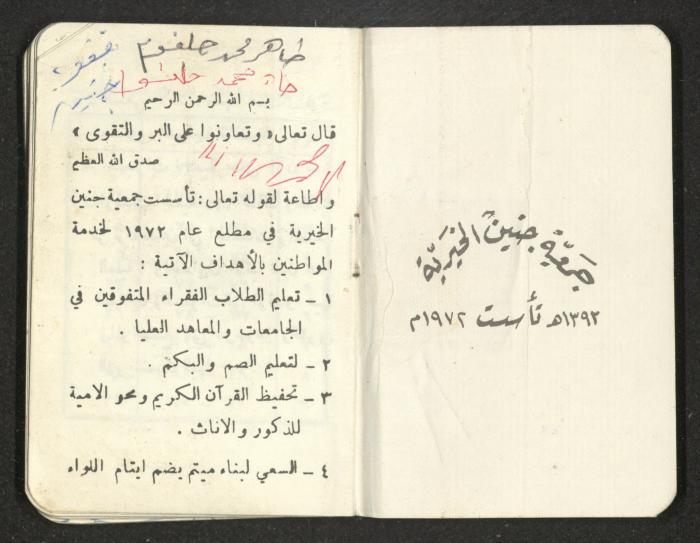 جمعية جنين الخيرية
١٣٩٢هـ تأسست ١٩٧٢م
طاهر محمد
محمد
بسم الله الرحمن الرحيم
قال تعالى « وتعاونوا على البر والتقوى »
صدق الله العظيم
واطاعة لقوله تعالى : تأسست جمعية جنين
الخيرية في مطلع عام ١٩٧٢ لخدمة
المواطنين بالأهداف الآتية :
١ ـ تعليم الطلاب الفقراء المتفوقين في
الجامعات والمعاهد العليا .
٢ ـ لتعليم الصم والبكم .
٣ ـ تحفيظ القرآن الكريم ومحو الامية
للذكور والاناث .
٤ ـ السعي لبناء ميتم يضم ايتام اللواء